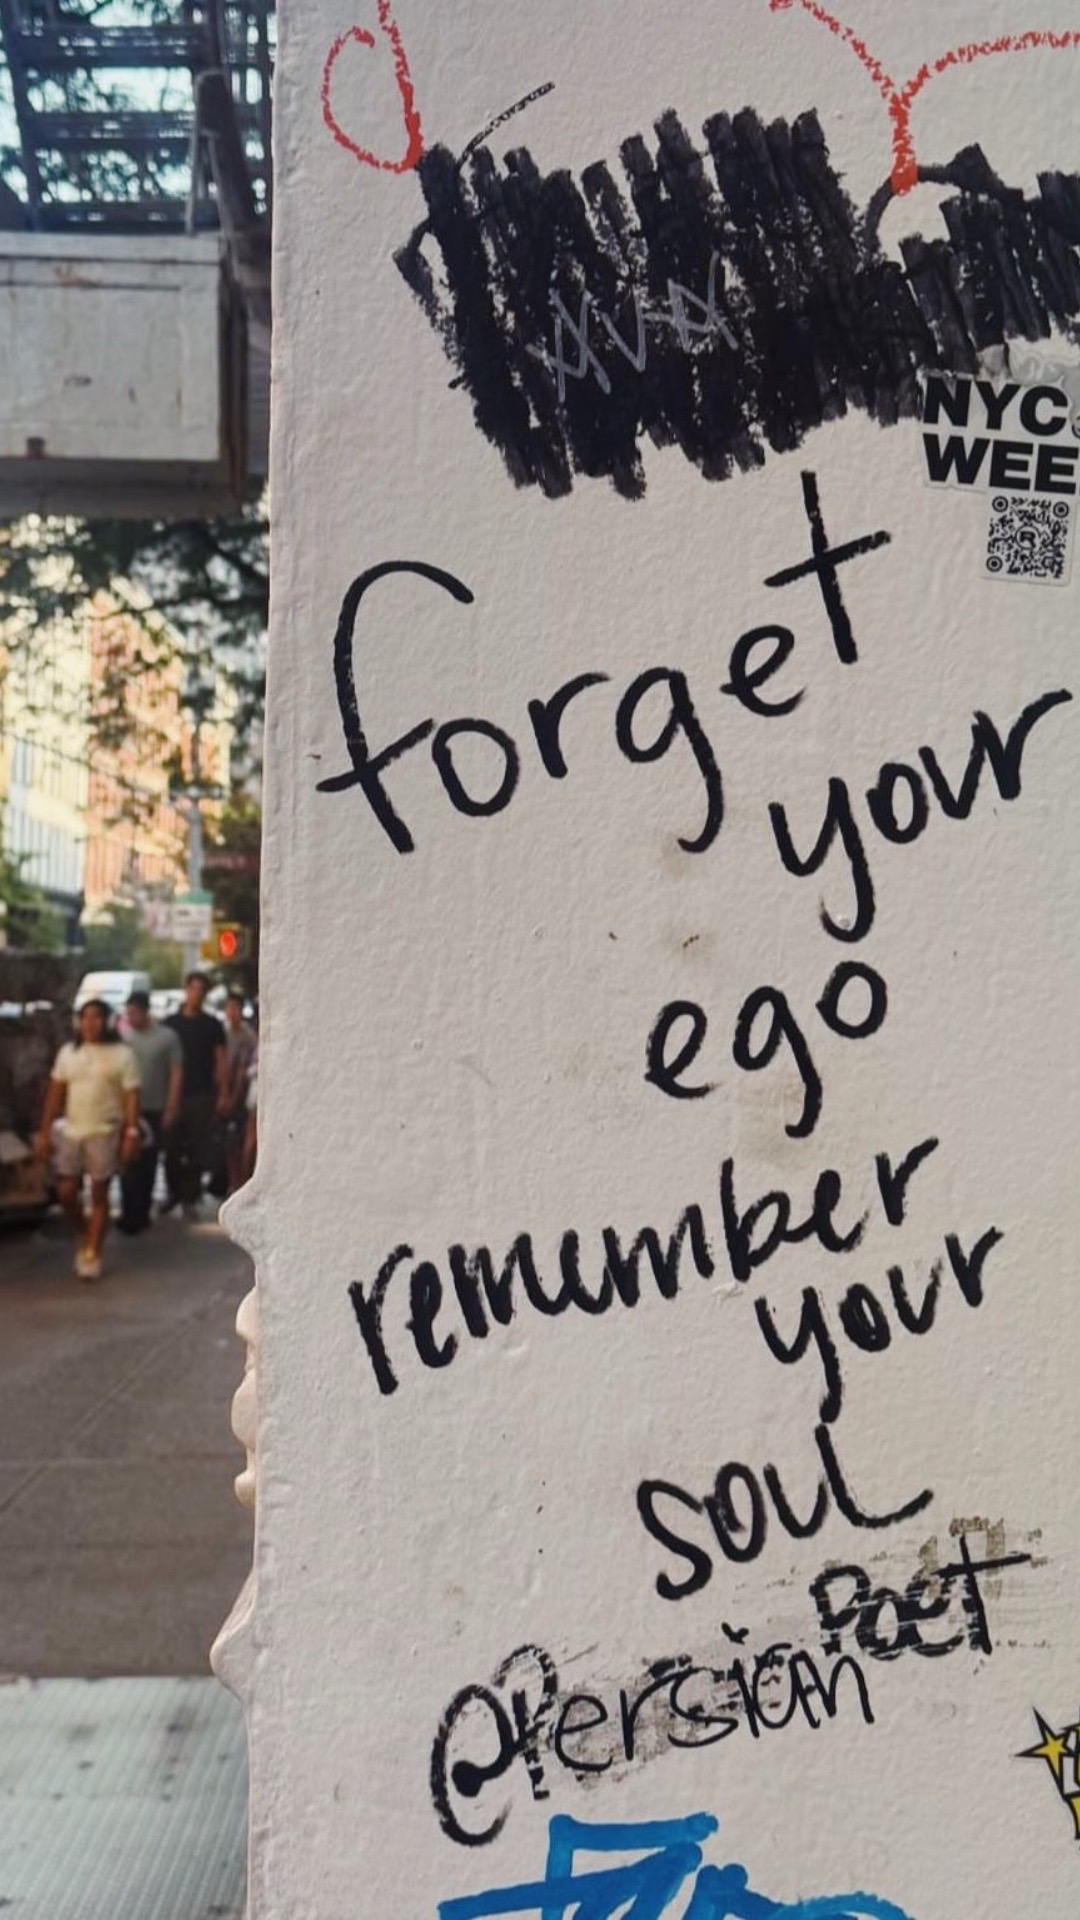 AVA
NYC
WEE
forget
your
ego
remember
your
soul
@Persian Poet